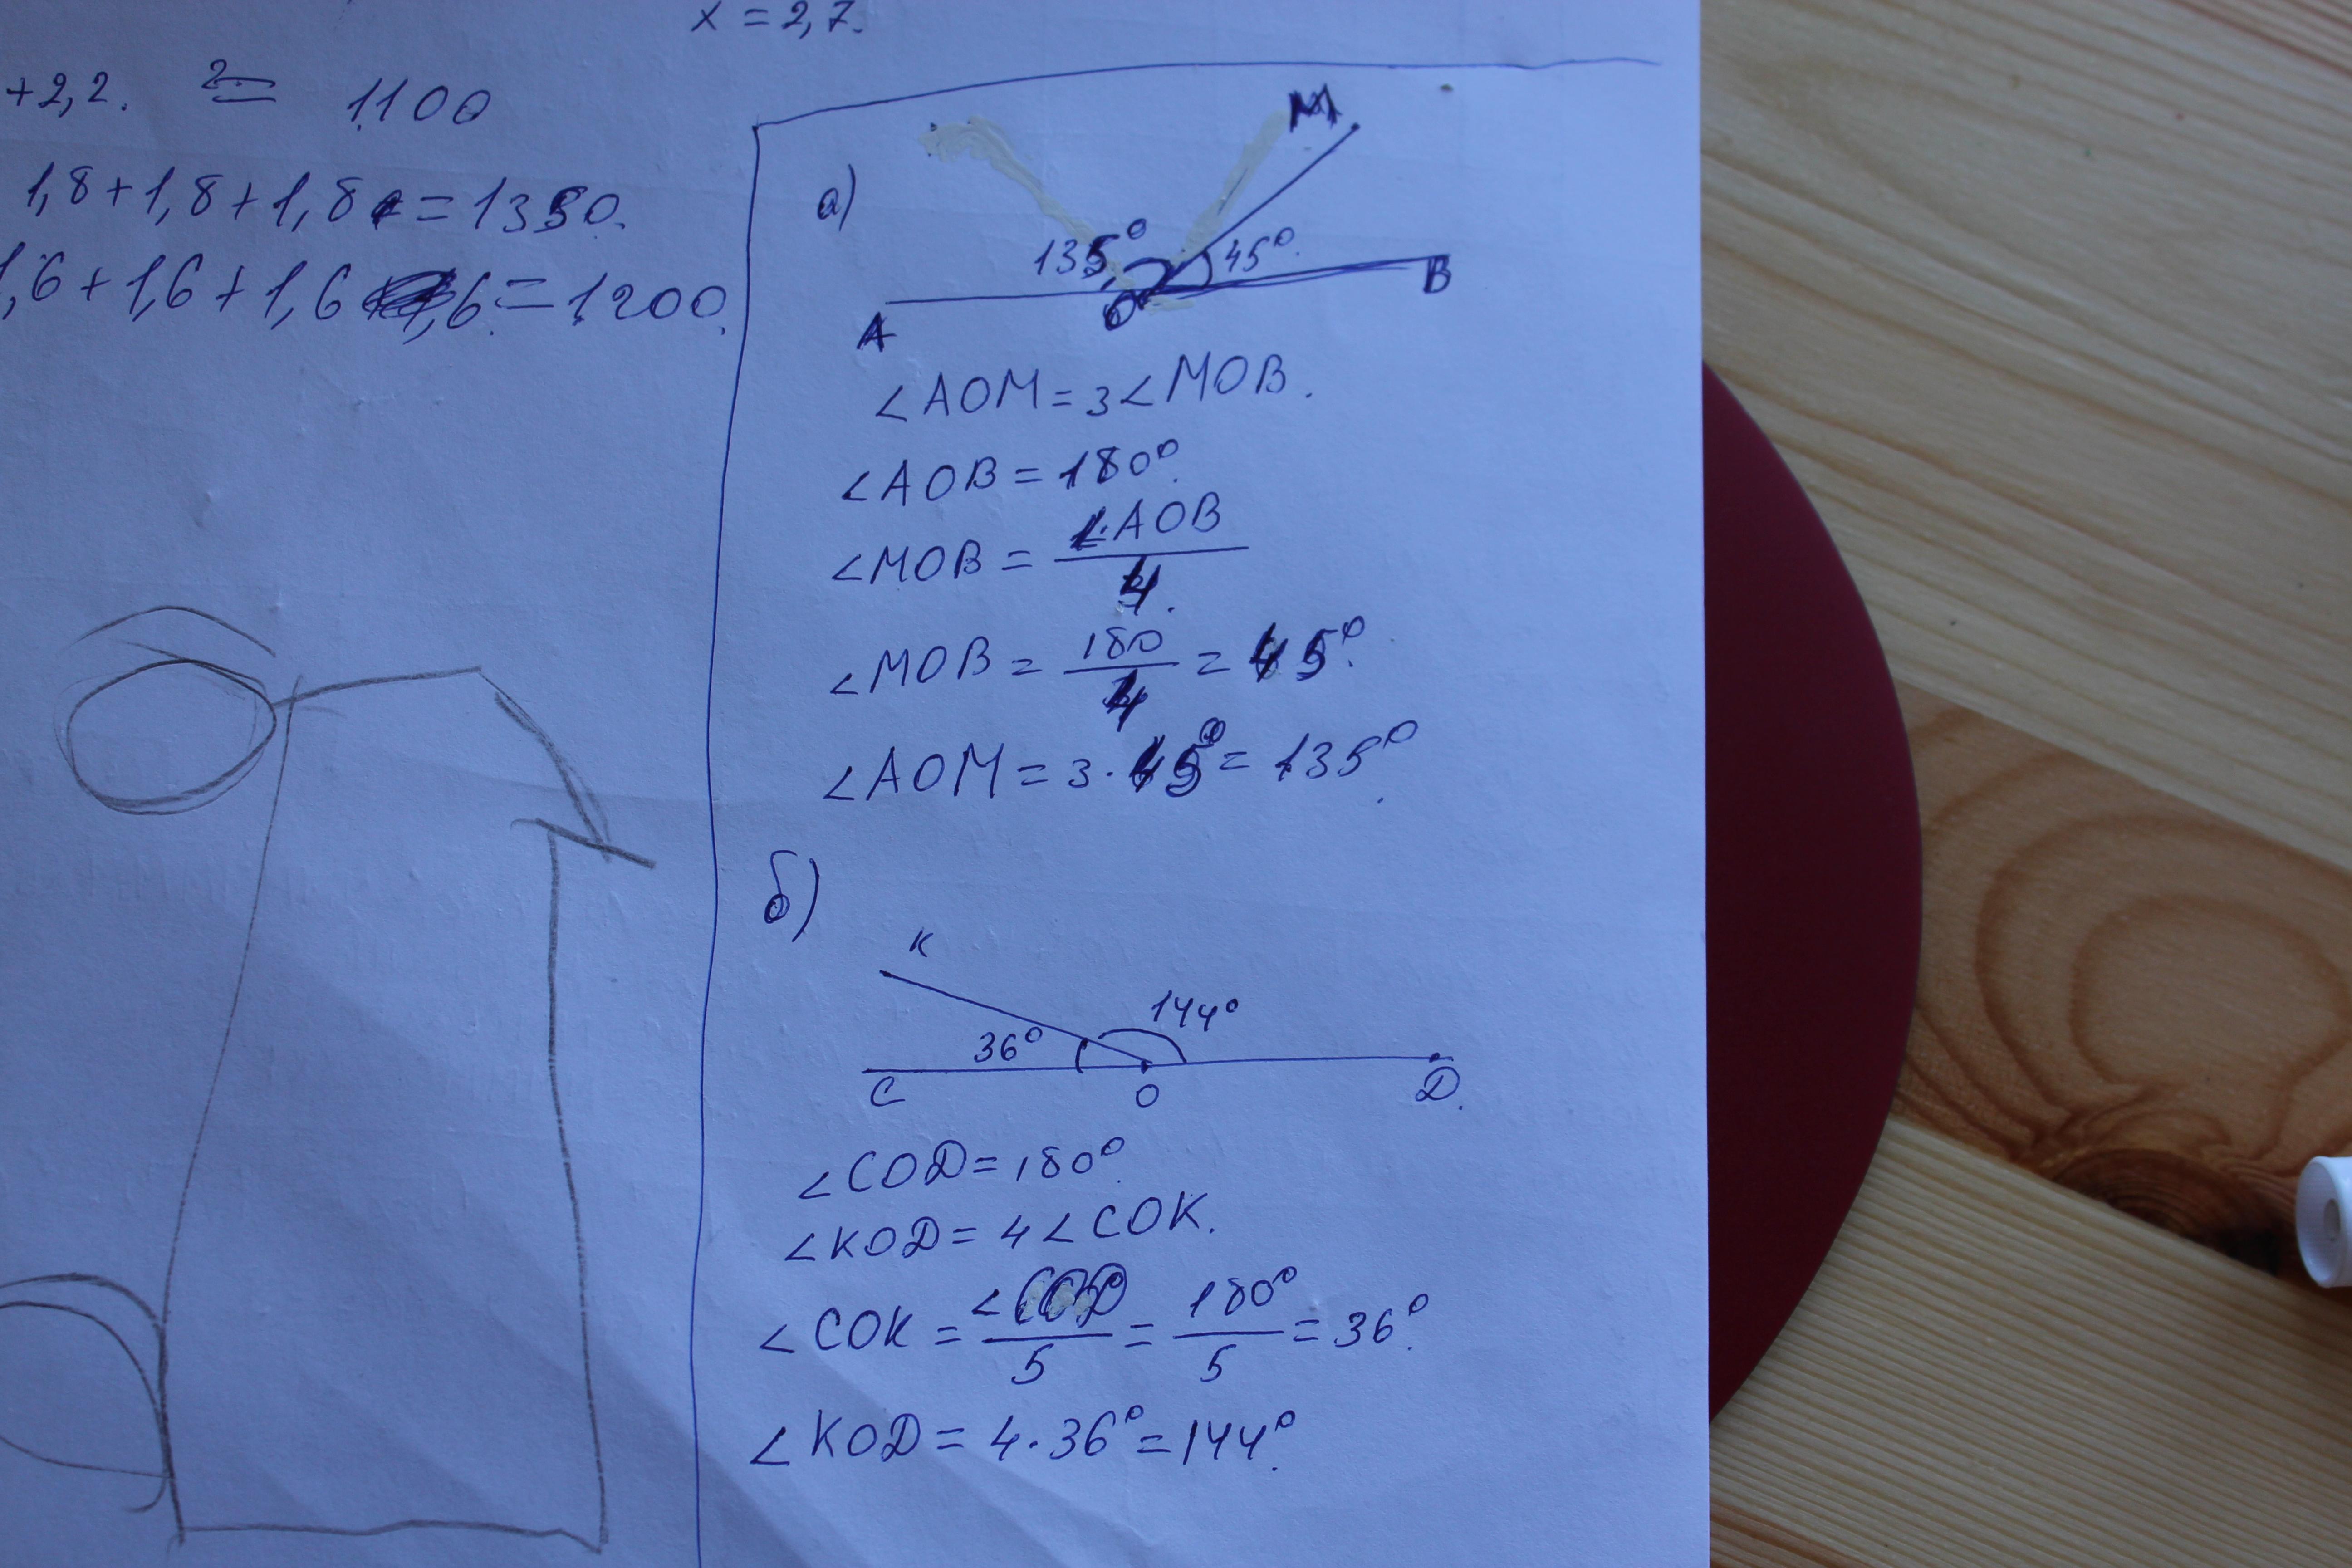 x = 2,7.
+2,2. = 1100
1,8+1,8+1,8 = 1350.
1,6+1,6+1,6 = 1200.
а)
M
135°
45°.
A
O
B
∠AOM = 3∠MOB.
∠AOB = 180°.
∠MOB = ∠AOB/4.
∠MOB = 180/4 = 45°.
∠AOM = 3·45° = 135°.
б)
K
144°
36°
C
O
D.
∠COD = 180°.
∠KOD = 4∠COK.
∠COK = ∠COD/5 = 180°/5 = 36°.
∠KOD = 4·36° = 144°.